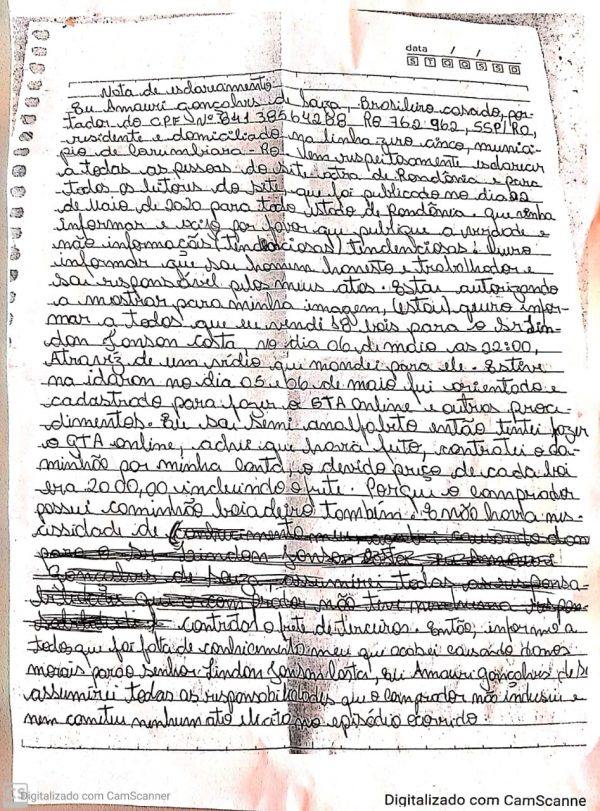 data / /
S T Q Q S S D
Nota de esclaramento
Eu Amauri gonçalves de Souza, Brasileiro casado, por-
tador do CPF Nº 841 385 642 88 RG 762 962, SSP/RO,
residente e domiciliado na linha zero cinco, municí-
pio de Corumbiara - RO. Vem respeitosamente esclarecer
a todas as pessoas do site extra de Rondônia e para
todos os leitores do site que foi publicado no dia 22
de Maio de 2020 para todo estado de Rondônia. que venha
informar e exijo por favor que publique a verdade e
não informações (tendenciosas) tindenciosas! Quero
informar que sou homem honesto e trabalhador e
sou responsável pelos meus atos. Estou autorizando
a mostrar para minha imagem, (estou) quero infor-
mar a todos que eu vendi 18 bois para o Sr Lin-
don Jonson Costa, no dia 06 de maio as 22:00,
Atravez de um vídio que mandei para ele. Estive
na idaron no dia 05 e 06 de maio fui orientado e
cadastrado para fazer o GTA online e outros proce-
dimentos. Eu sou semi analfabeto então tentei fazer
o GTA online, achei que havia feito, contratei o ca-
minhão por minha conta, o devido preço de cada boi
era 2000,00 incluindo o frete. Porque o comprador
possui caminhão boiadeiro também. E não havia nes-
cessidade de
contratar o frete de terceiros. Então, informo a
todos que foi falta de conhecimento meu que acabei causando danos
morais para o senhor Lindon Jonson Costa, Eu Amauri gonçalves de S
assumirei todas as responsabilidades que o comprador não induziu e
nem cometeu nenhum ato elícito no episódio ocorrido.
CS Digitalizado com CamScanner
Digitalizado com CamScanne